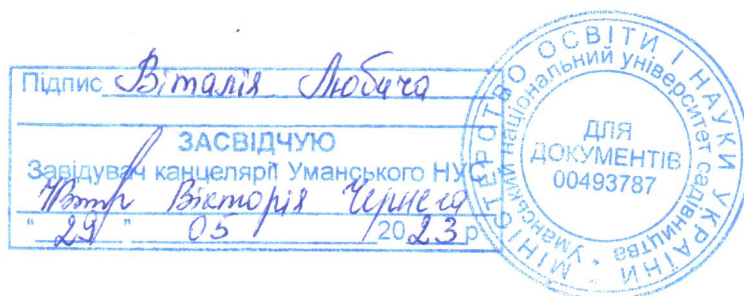 Підпис Віталія Любича
ЗАСВІДЧУЮ
Завідувач канцелярії Уманського НУС
Вікторія Чернега
"29" 05 2023 р
МІНІСТЕРСТВО ОСВІТИ І НАУКИ УКРАЇНИ *
Уманський національний університет садівництва *
ДЛЯ
ДОКУМЕНТІВ
00493787